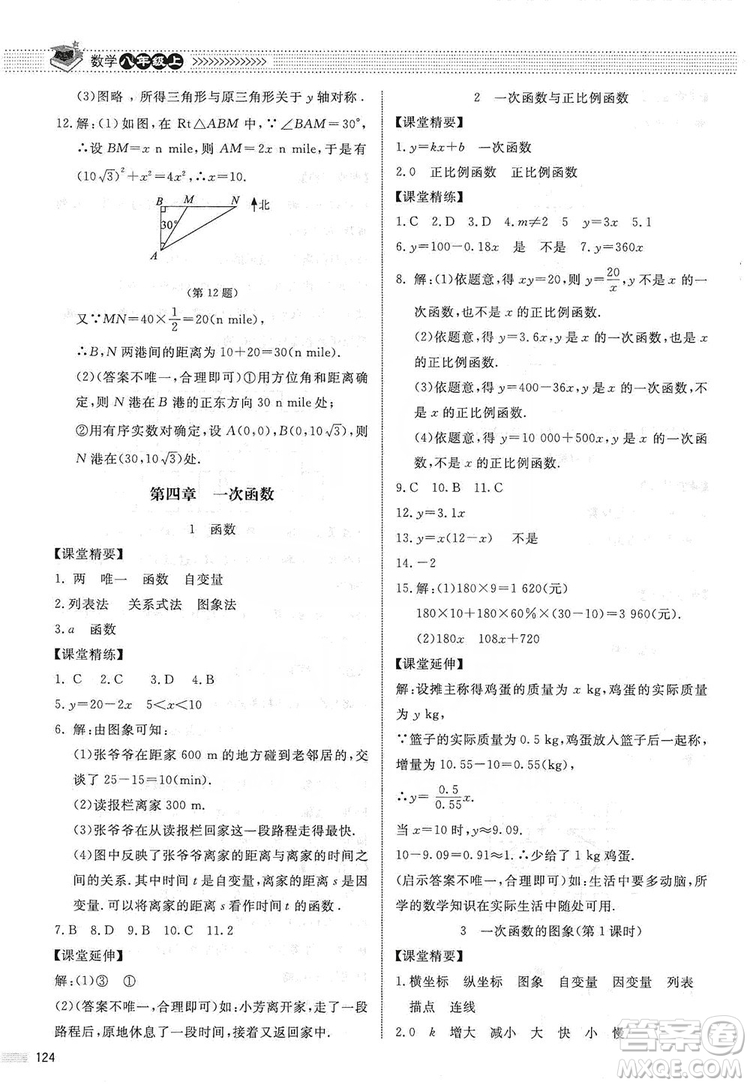 数学八年级上
(3)图略，所得三角形与原三角形关于 y 轴对称.
12.解:(1)如图，在 Rt△ABM 中，∵∠BAM=30°，
∴设 BM=x n mile，则 AM=2x n mile，于是有
(10√3)²+x²=4x²，∴x=10.
B M N 北
30°
A
(第 12 题)
又∵MN=40×1/2=20(n mile)，
∴B，N 两港间的距离为 10+20=30(n mile).
(2)(答案不唯一，合理即可)①用方位角和距离确
定，则 N 港在 B 港的正东方向 30 n mile 处；
②用有序实数对确定，设 A(0,0)，B(0,10√3)，则
N 港在(30,10√3)处.
第四章 一次函数
1 函数
【课堂精要】
1.两 唯一 函数 自变量
2.列表法 关系式法 图象法
3.a 函数
【课堂精练】
1.C 2.C 3.D 4.B
5.y=20-2x 5<x<10
6.解:由图象可知:
(1)张爷爷在距家 600 m 的地方碰到老邻居的，交
谈了 25-15=10(min).
(2)读报栏离家 300 m.
(3)张爷爷在从读报栏回家这一段路程走得最快.
(4)图中反映了张爷爷离家的距离与离家的时间之
间的关系.其中离家的时间 t 是自变量，离家的距
离 s 是因变量，离家的距离 s 看作时间 t 的函数.
7.B 8.D 9.C 10.C 11.2
【课堂延伸】
解:(1)③ ①
(2)(答案不唯一，合理即可)如:小芳离开家，走了一段
路程后，原地休息了一段时间，接着又返回家里.
124
2 一次函数与正比例函数
【课堂精要】
1.y=kx+b 一次函数
2.0 正比例函数 正比例函数
【课堂精练】
1.C 2.D 3.D 4.m≠2 5 y=3x 5.1
6.y=100-0.18x 是 不是 7.y=360x
8.解:(1)依题意，得 xy=20，则 y=20/x，y 不是 x 的一
次函数，也不是 x 的正比例函数.
(2)依题意，得 y=3.6x，y 是 x 的一次函数，也是 x
的正比例函数.
(3)依题意，得 y=400-36x，y 是 x 的一次函数，但
不是 x 的正比例函数.
(4)依题意，得 y=10 000+500x，y 是 x 的一次函
数，但不是 x 的正比例函数.
9.C 10.B 11.C
12.y=3.1x
13.y=x(12-x) 不是
14.-2
15.解:(1)180×9=1 620(元)
180×10+180×60%×(30-10)=3 960(元).
(2)180x 108x+720
【课堂延伸】
解:设摊主称得鸡蛋的质量为 x kg，鸡蛋的实际质量
为 y kg，
∵篮子的实际质量为 0.5 kg，鸡蛋放入篮子一起称，
增量为 10.55-10=0.55(kg)，
∴y=0.5/0.55x.
当 x=10 时，y≈9.09.
10-9.09=0.91≈1，∴少给了 1 kg 鸡蛋.
(启示答案不唯一，合理即可)如:生活中要多动脑，所
学的数学知识在生活中随处可用.
3 一次函数的图象(第 1 课时)
【课堂精要】
1.横坐标 纵坐标 图象 自变量 因变量 列表
描点 连线
2.0 k 增大 减小 大 快 小 慢
答案圈
MXQE.COM